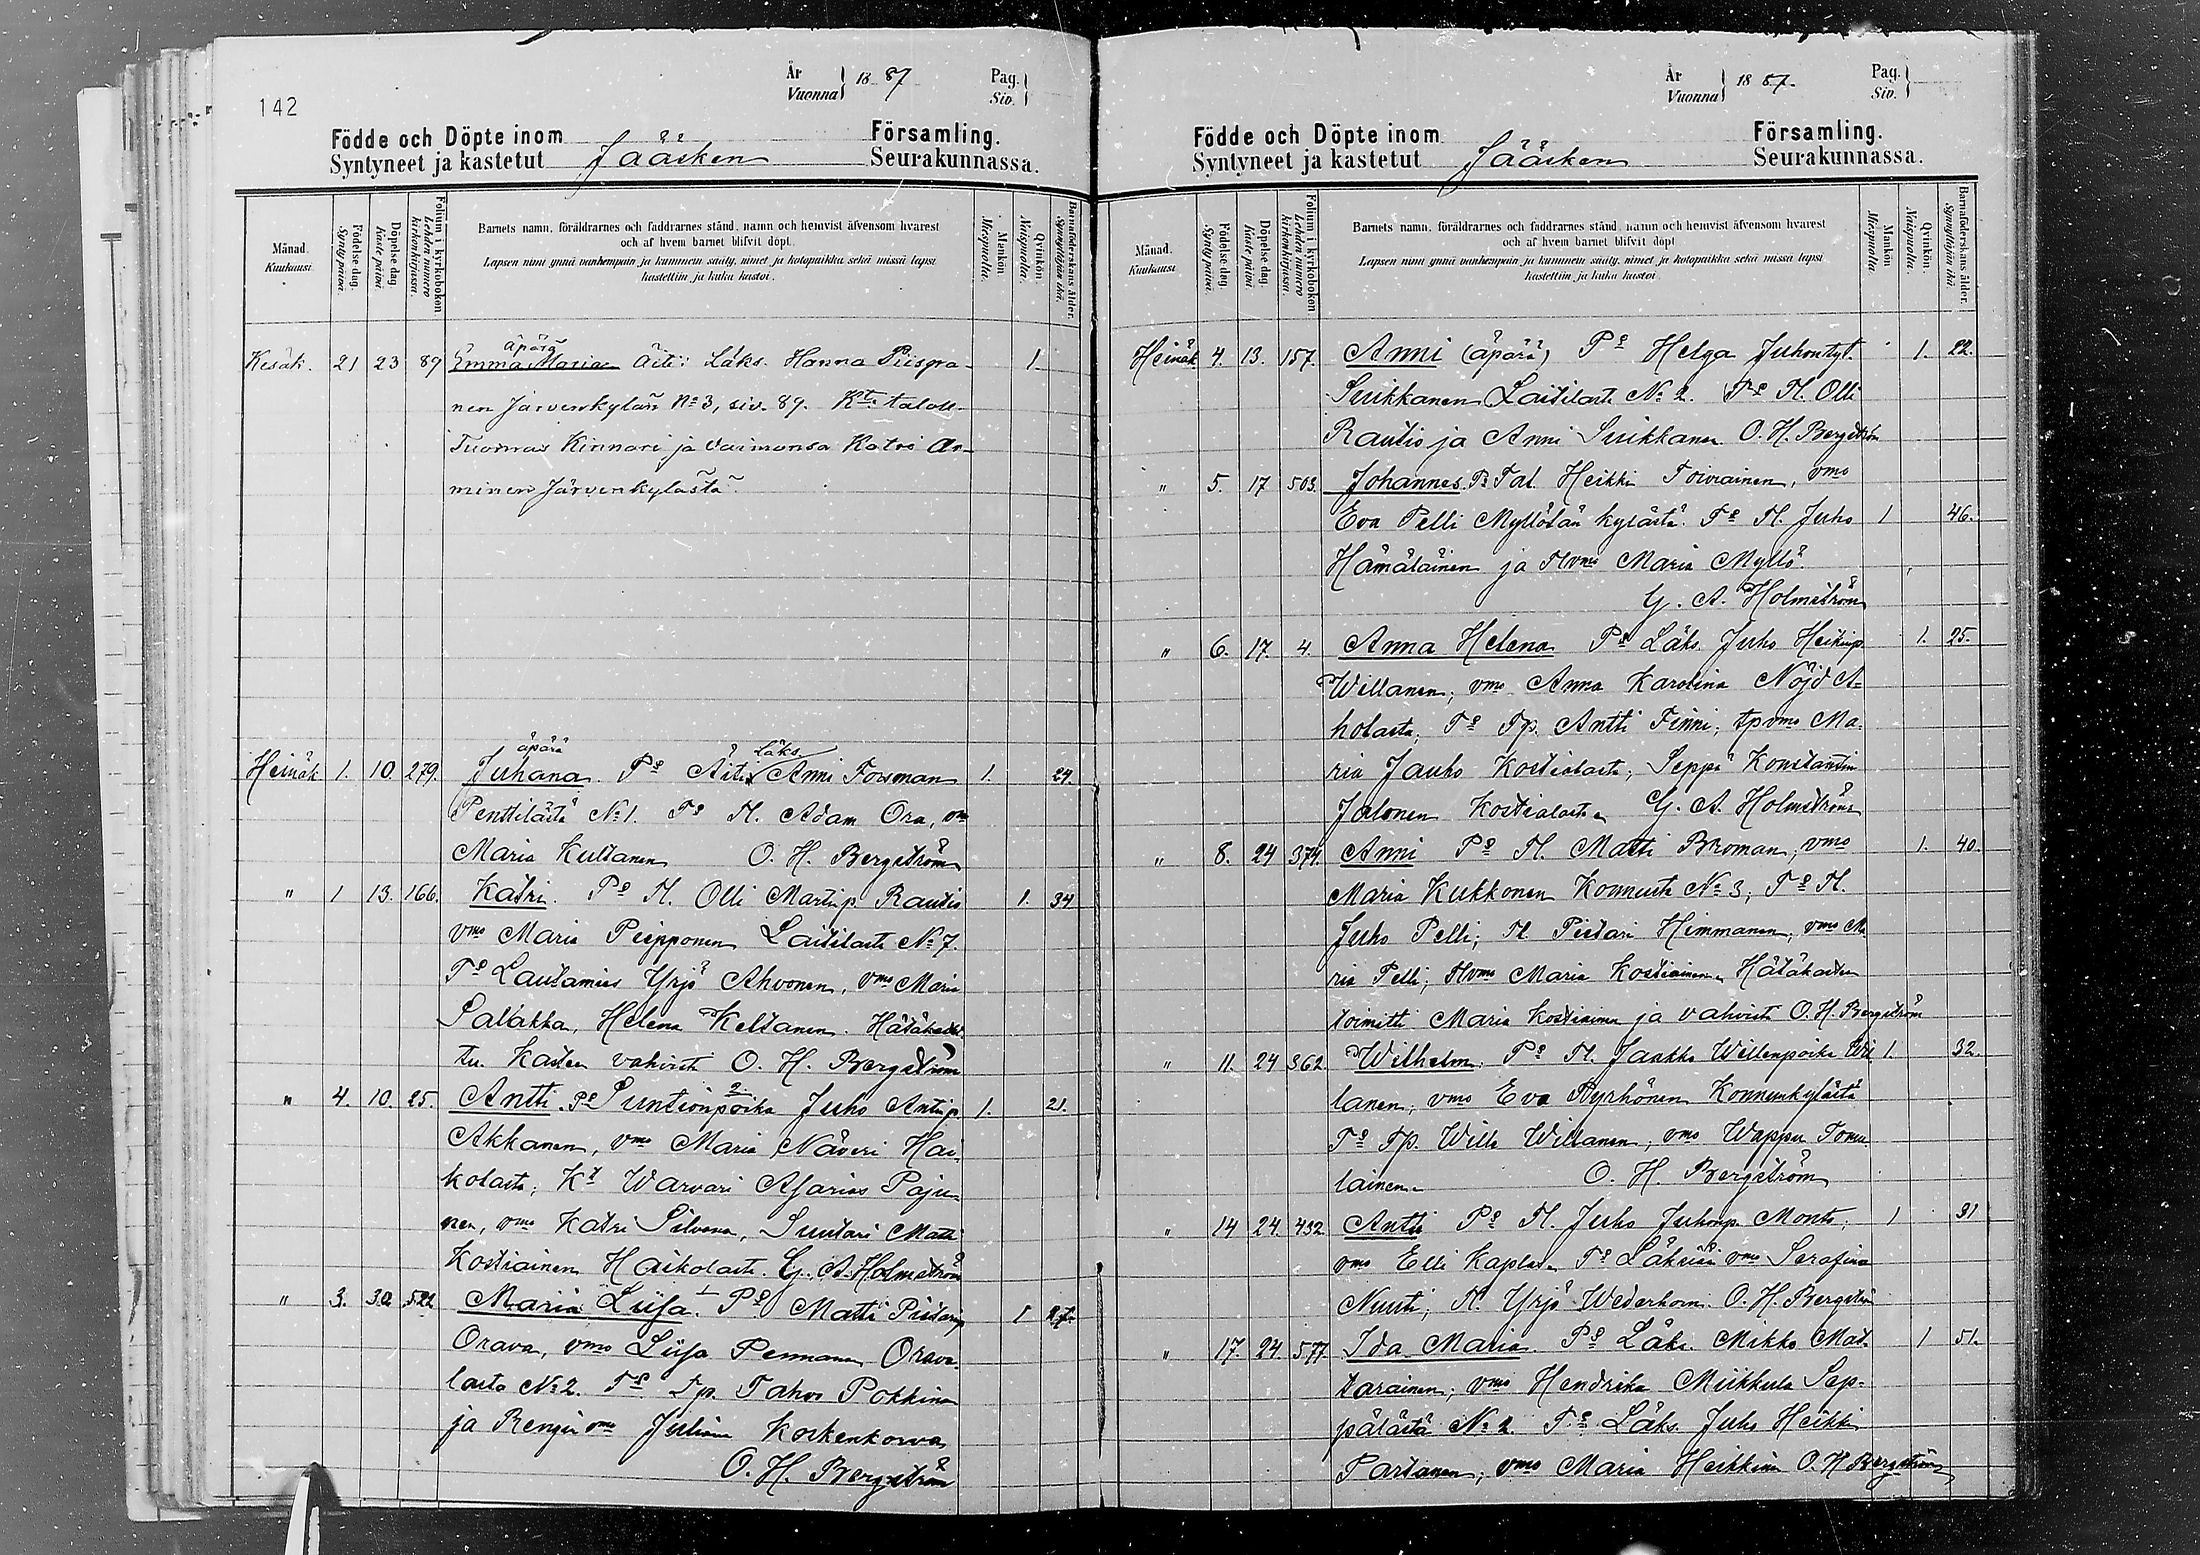 142
År
Vuonna
1887
Pag.
Siv.
Födde och Döpte inom
Syntyneet ja kastetut
Jääsken
Församling.
Seurakunnassa.
Månad.
Kuukausi.
Födelse dag.
Synty päivä.
Döpelse dag.
Kaste päivä.
Folium i kyrkobokon
Lehden numero
kirkonkirjassa.
Barnets namn, föräldrarnes och faddrarnes stånd, namn och hemvist äfvensom hvarest
och af hvem barnet blifvit döpt.
Lapsen nimi ynnä vanhempain ja kummein sääty, nimet ja kotopaikka sekä missä lapsi
kastettiin ja kuka kastoi.
Mankön
Miespuolta.
Qvinkön.
Naispuolta.
Barnaföderskans ålder.
Synnyttäjän ikä.
äpärä
Kesäk. 21 23 89 Emma Maria Äiti: Läks. Hanna Piispa- 1.
nen Järvenkylän No 3, siv. 89. Kt. taloll.
Tuomas Kinnari ja Vaimonsa Katri Ar-
minen Järvenkylästä.
äpärä Läks
Heinäk 1. 10. 279. Juhana. Ps Äiti Anni Forsman 1. 24.
Penttilästä No 1. Ts Tl. Adam Ora, vm
Maria Kultanen O. H. Bergström
" 1 13. 166. Katri. Ps Tl. Olli Martinp. Rautio 1. 34
vmo Maria Piipponen Laitilasta No 7.
Ts Lautamies Yrjö Ahvonen, vmo Maria
Salakka, Helena Keltanen. Hätäkaste-
tu. Kasteen vahvisti O. H. Bergström
" 4. 10. 25. Antti. Ps Suntionpoika Juho Antinp. 1. 21.
Akkanen, vmo Maria Näveri Hai-
kolasta; Kt Warvari Asarias Paju-
nen, vmo Katri Silvena, Suutari Matti
Kostiainen Haikolasta. G. A. Holmström
" 3. 30. 522 Maria Liisa. Ps Matti Pietarinp 1 27.
Orava, vmo Liisa Pennanen Orava-
lasta No 2. Ts Tp. Tahvo Pokkinen
ja Rengin vmo Juliana Koskenkorva
O. H. Bergström
År
Vuonna
1887.
Pag.
Siv.
Födde och Döpte inom
Syntyneet ja kastetut
Jääsken
Församling.
Seurakunnassa.
Månad.
Kuukausi.
Födelse dag.
Synty päivä.
Döpelse dag.
Kaste päivä.
Folium i kyrkobokon
Lehden numero
kirkonkirjassa.
Barnets namn, föräldrarnes och faddrarnes stånd, namn och hemvist äfvensom hvarest
och af hvem barnet blifvit döpt
Lapsen nimi ynnä vanhempain ja kummein sääty, nimet ja kotopaikka sekä missä lapsi
kastettiin ja kuka kastoi.
Mankön
Miespuolta.
Qvinkön.
Naispuolta.
Barnaföderskans ålder.
Synnyttäjän ikä.
Heinäk 4. 13. 157. Anni (äpärä) Ps Helga Juhontyt. 1. 22.
Suikkanen Laitilasta No 2. Ts Tl. Olli
Rautio ja Anni Suikkanen O. H. Bergström
" 5. 17 503. Johannes. Ps Tal. Heikki Toivainen, vmo
Eva Pelli Myllölän kylästä. Ts Tl. Juho 1 46.
Hämäläinen ja Tlvmo Maria Myllö.
G. A. Holmström
" 6. 17. 4. Anna Helena Ps Läks. Juho Heikinp. 1. 25.
Willanen, vmo Anna Karolina Nöjd A-
holasta, Ts Tp. Antti Finni, tpvmo Ma-
ria Jauho Kostialasta, Seppä Konstantin
Jalonen Kostialasta G. A. Holmström
" 8. 24 374. Anni Ps Tl. Matti Broman, vmo 1. 40.
Maria Kukkonen Konnusta No 3, Ts Tl.
Juho Pelli, Tl. Pietari Himmanen, vmo Ma-
ria Pelli, Tlvmo Maria Kostiainen Hätäkasteen
toimitti Maria Kostiainen ja vahvisti O. H. Bergström
" 11. 24 362 Wilhelm. Ps Tl. Jaakko Willenpoika Wil 1. 32.
lanen, vmo Eva Pyrhönen Konnunkylästä
Ts Tp. Wille Willanen, vmo Wappu Tonu-
lainen. O. H. Bergström
" 14 24. 432 Antti Ps Tl. Juho Juhonp. Monto, 1 31
vmo Elli Kaplas. Ts Läksiäis vmo Serafina
Nuuti, Tl. Yrjö Wederhorn. O. H. Bergström
" 17. 24. 577. Ida Maria Ps Läks. Mikko Mat- 1 51.
tarainen, vmo Hendrika Miikkula Sep-
pälästä No 2. Ts Läks. Juho Heikki
Partanen, vmo Maria Heikkinen O. H. Bergström